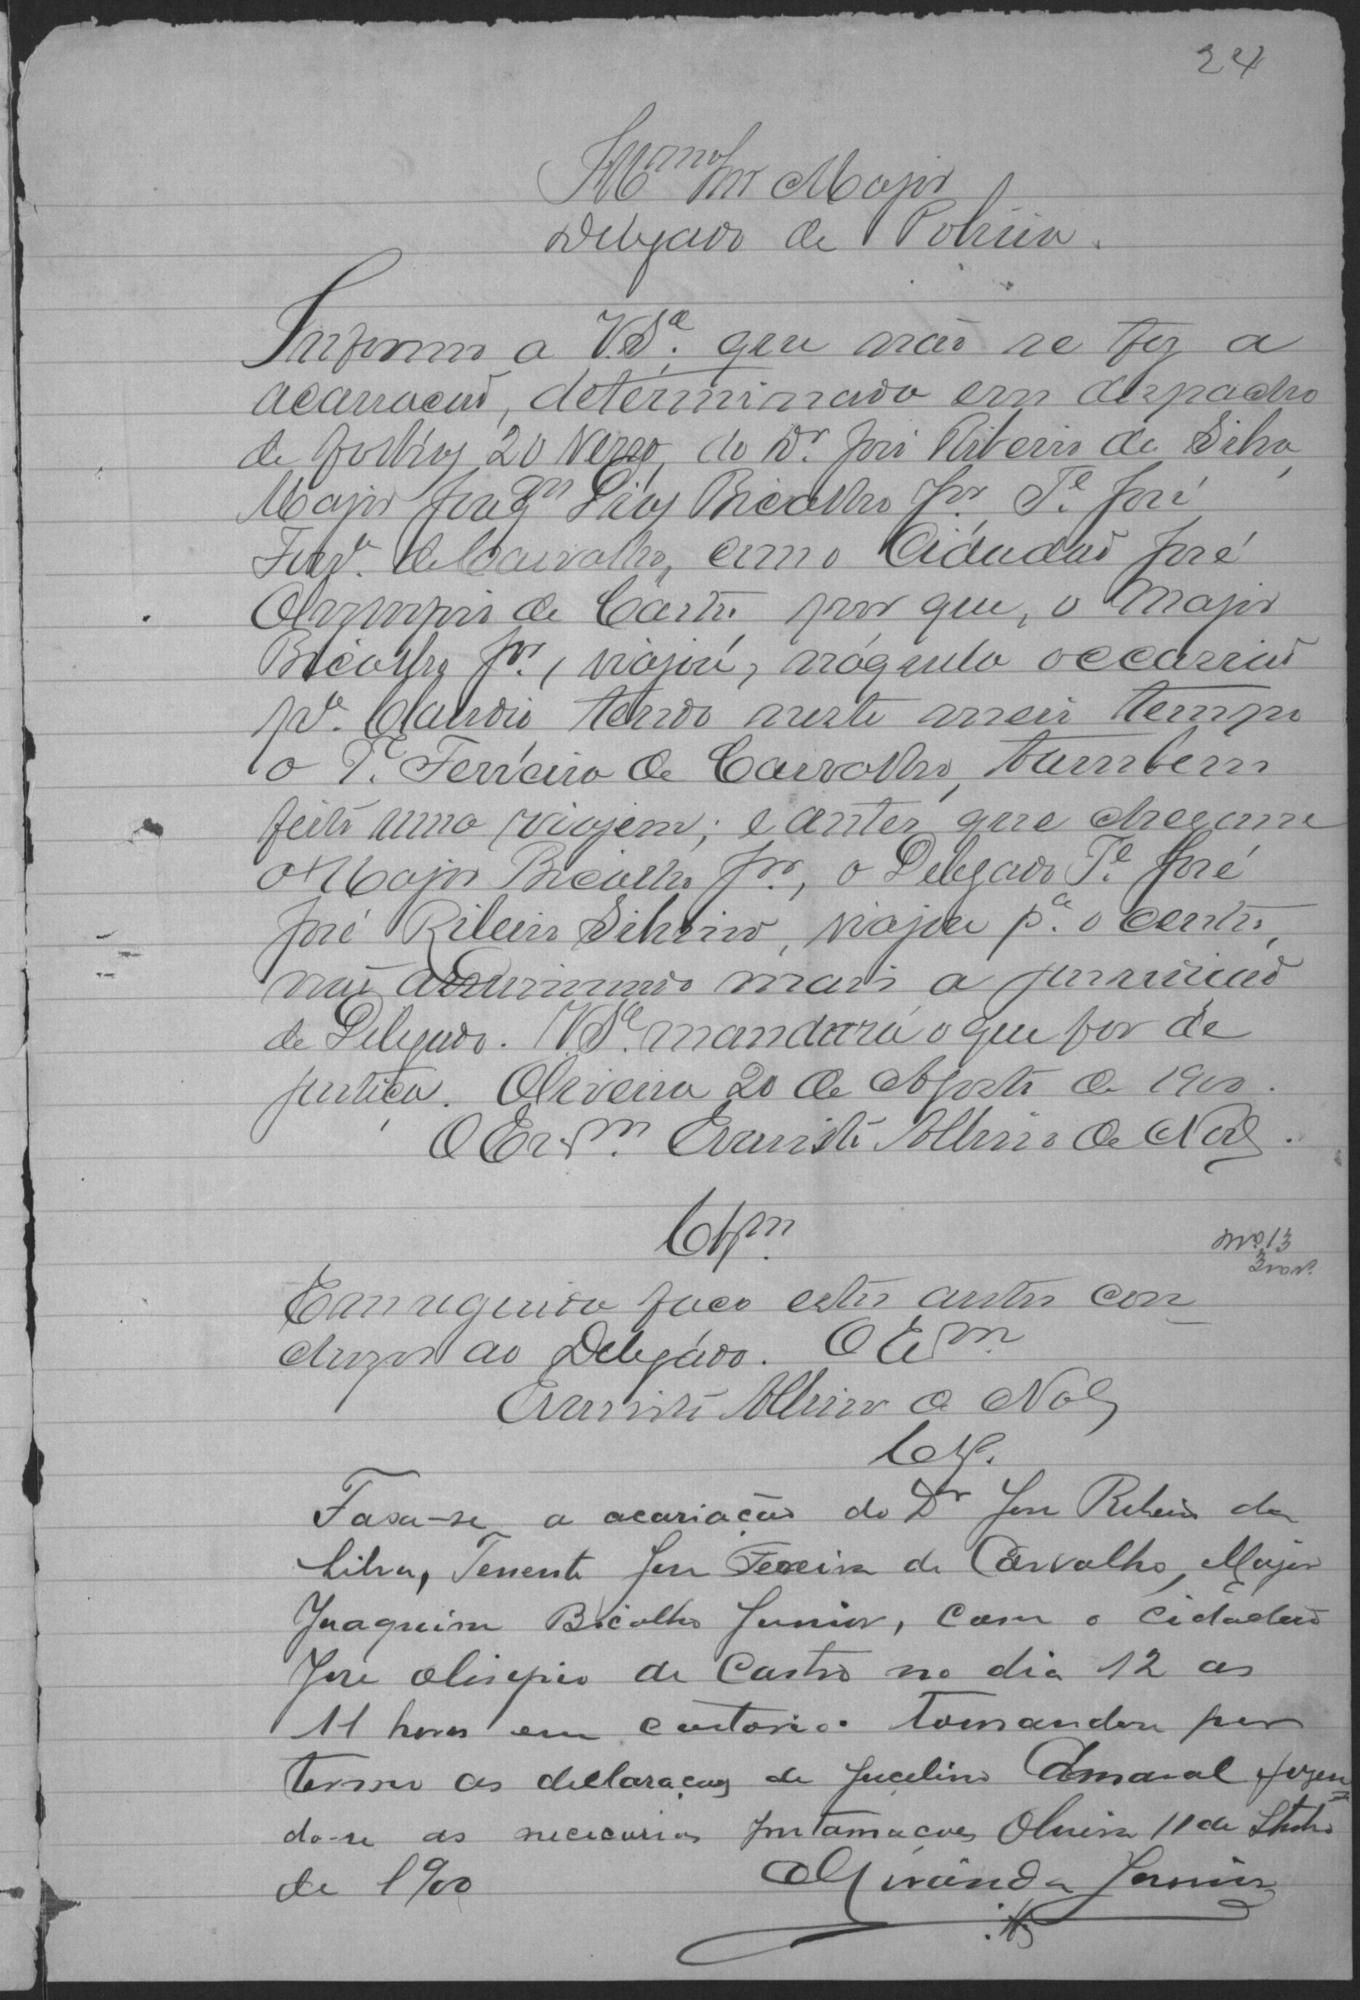 24
Illmo Snr Major
Delegado de Policia.
Informo a V.Sª. que não se fez a
acariacão, determinada em despacho
de folhas 20 verso, do Dr José Ribeiro da Silva,
Major Joaqm Dias Bicalho Jor, Te. José
Ferrª. de Carvalho, com o Cidadão José
Olympio de Castro por que, o Major
Bicalho Jor., viajou, náquela occazião
pª. Claudio tendo neste meio tempo
o Te. Ferreira de Carvalho, tambem
feito uma viajem; e antes que chegasse
o Major Bicalho Jor., o Delegado Te. José
José Ribeiro Silveira, viajou pª. o centro,
não assumindo mais a jurisdicão
de Delegado. V.Sª. mandará o que for de
justiça. Oliveira 20 de Agosto de 1900.
O Escvm. Evaristo Albino de
Clsm.
Em seguida faco estes autos con-
cluzos ao Delegado. O Escvm
Evaristo Albino de
Cls.
Fasa-se a acariação do Dr José Ribeiro da
Silva, Tenente José Fereira de Carvalho, Major
Joaquim Bicalho Junior, com o cidadão
José Olimpio de Castro no dia 12 as
11 horas em cartorio. Tomando por
termo as declaracões de Jucelino Amaral fazen
do-se as nececarias Oliveira 11 de
de 1900 Miranda Junior